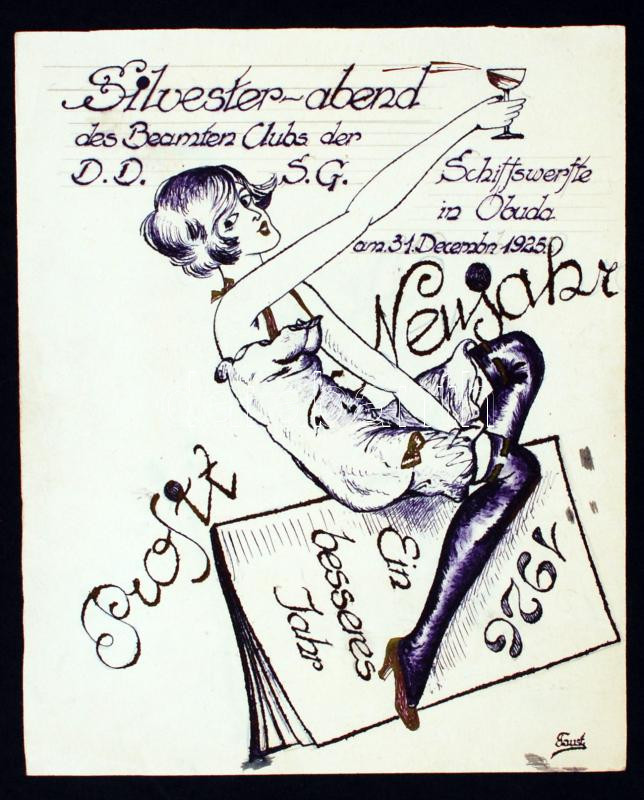 Silvester-abend
des Beamten Clubs der
D. D. S. G. Schiffswerfte
in Obuda
am 31. Decembr 1925.
Prosit Neujahr
Ein
besseres
Jahr
1926
Faust